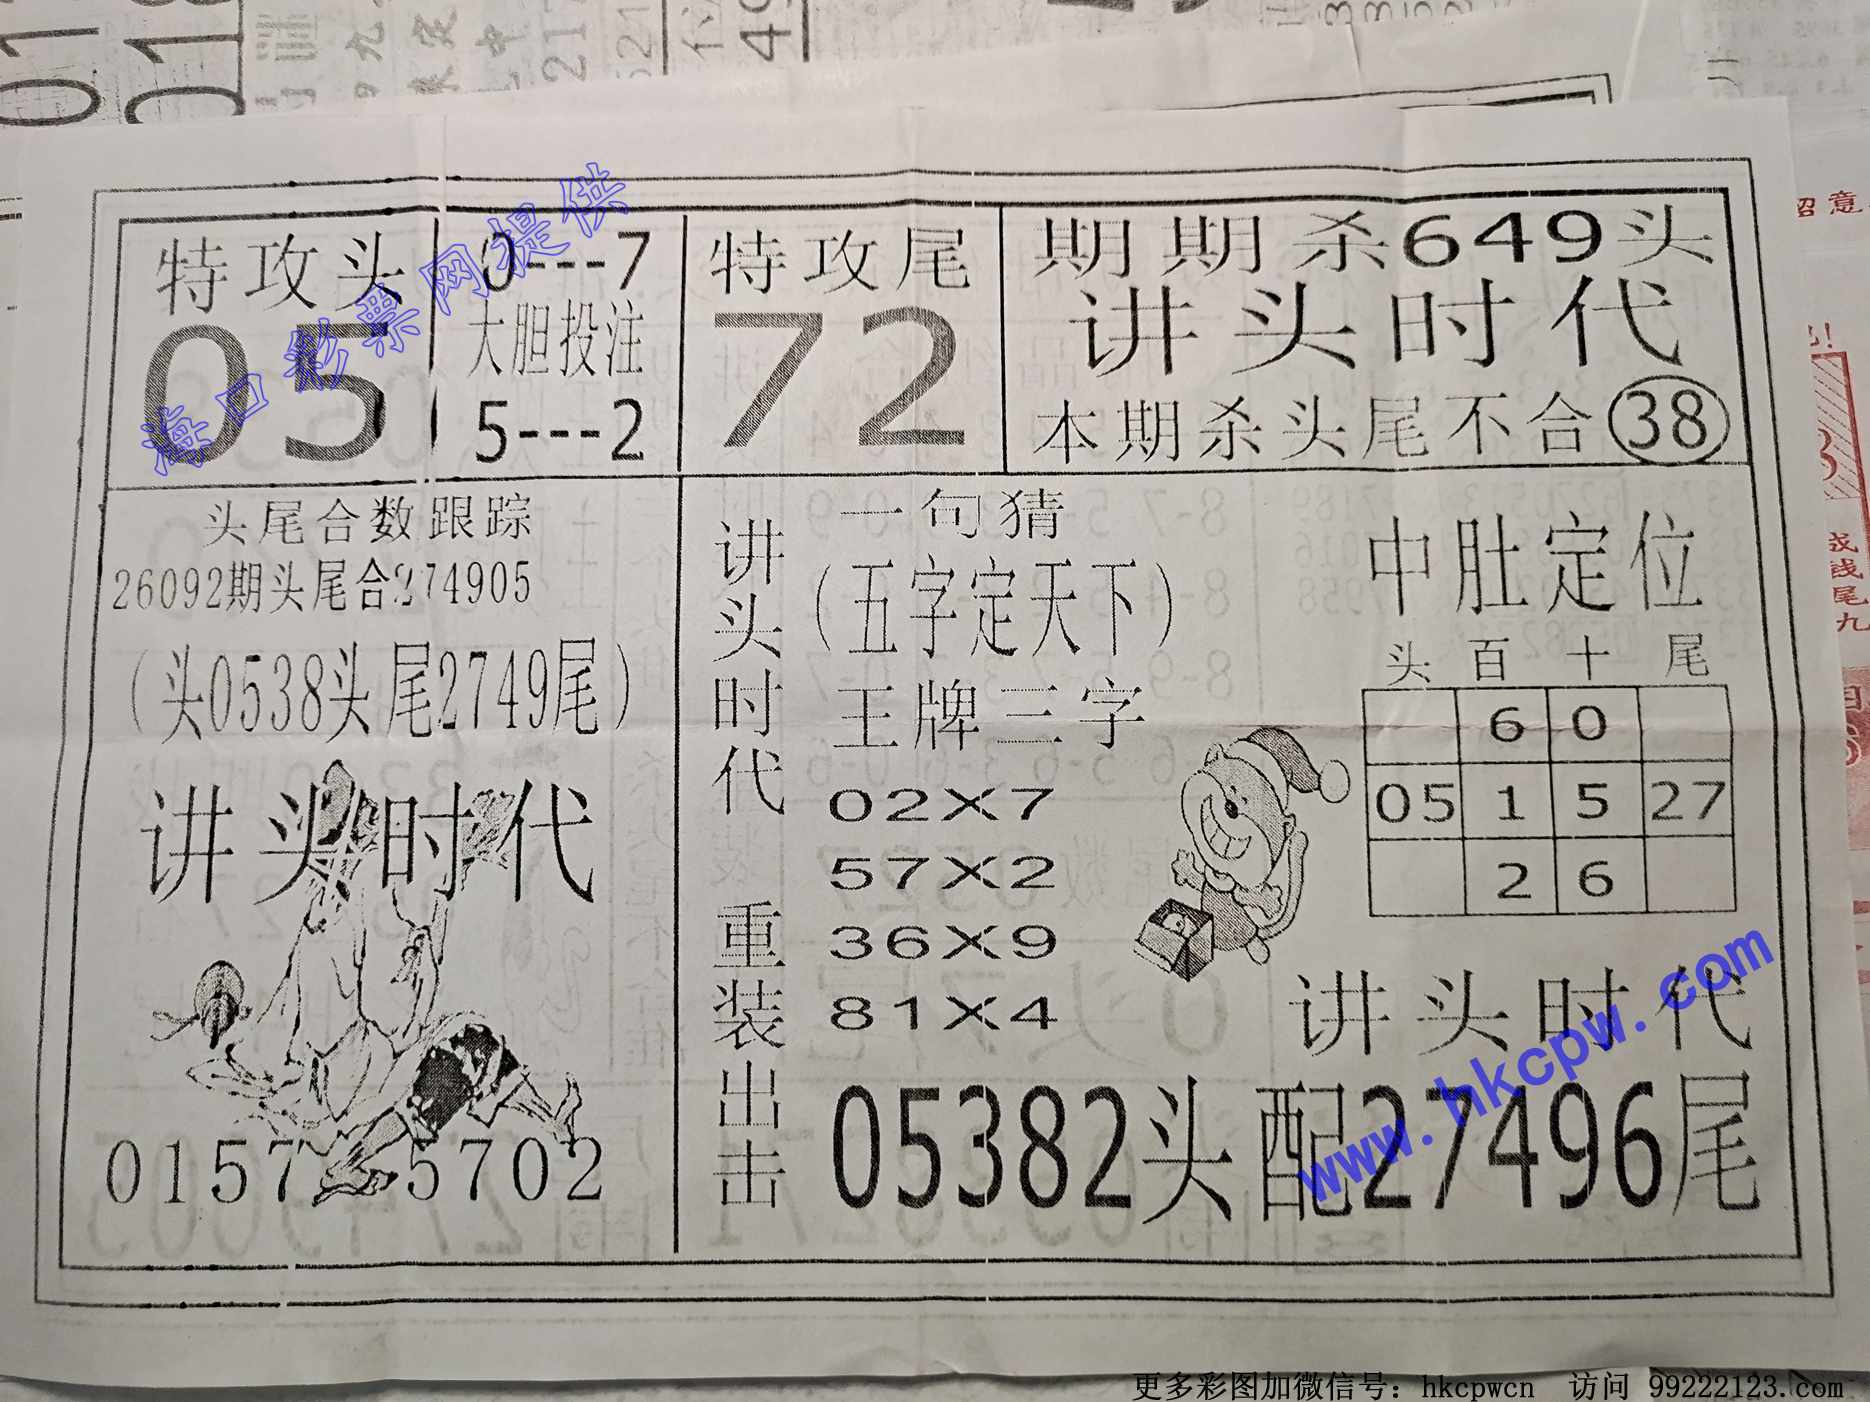 特攻头
05
0---7
大胆投注
5---2
特攻尾
72
期期杀649头
讲头时代
本期杀头尾不合38
头尾合数跟踪
26092期头尾合274905
(头0538头尾2749尾)
讲头时代
0157
5702
讲头时代
重装出击
一句猜
(五字定天下)
王牌三字
02X7
57X2
36X9
81X4
中肚定位
头 百 十 尾
6 0
05 1 5 27
2 6
讲头时代
05382头配27496尾
海口彩票网提供
www.hkcpw.com
更多彩图加微信号：hkcpwcn 访问 99222123.com